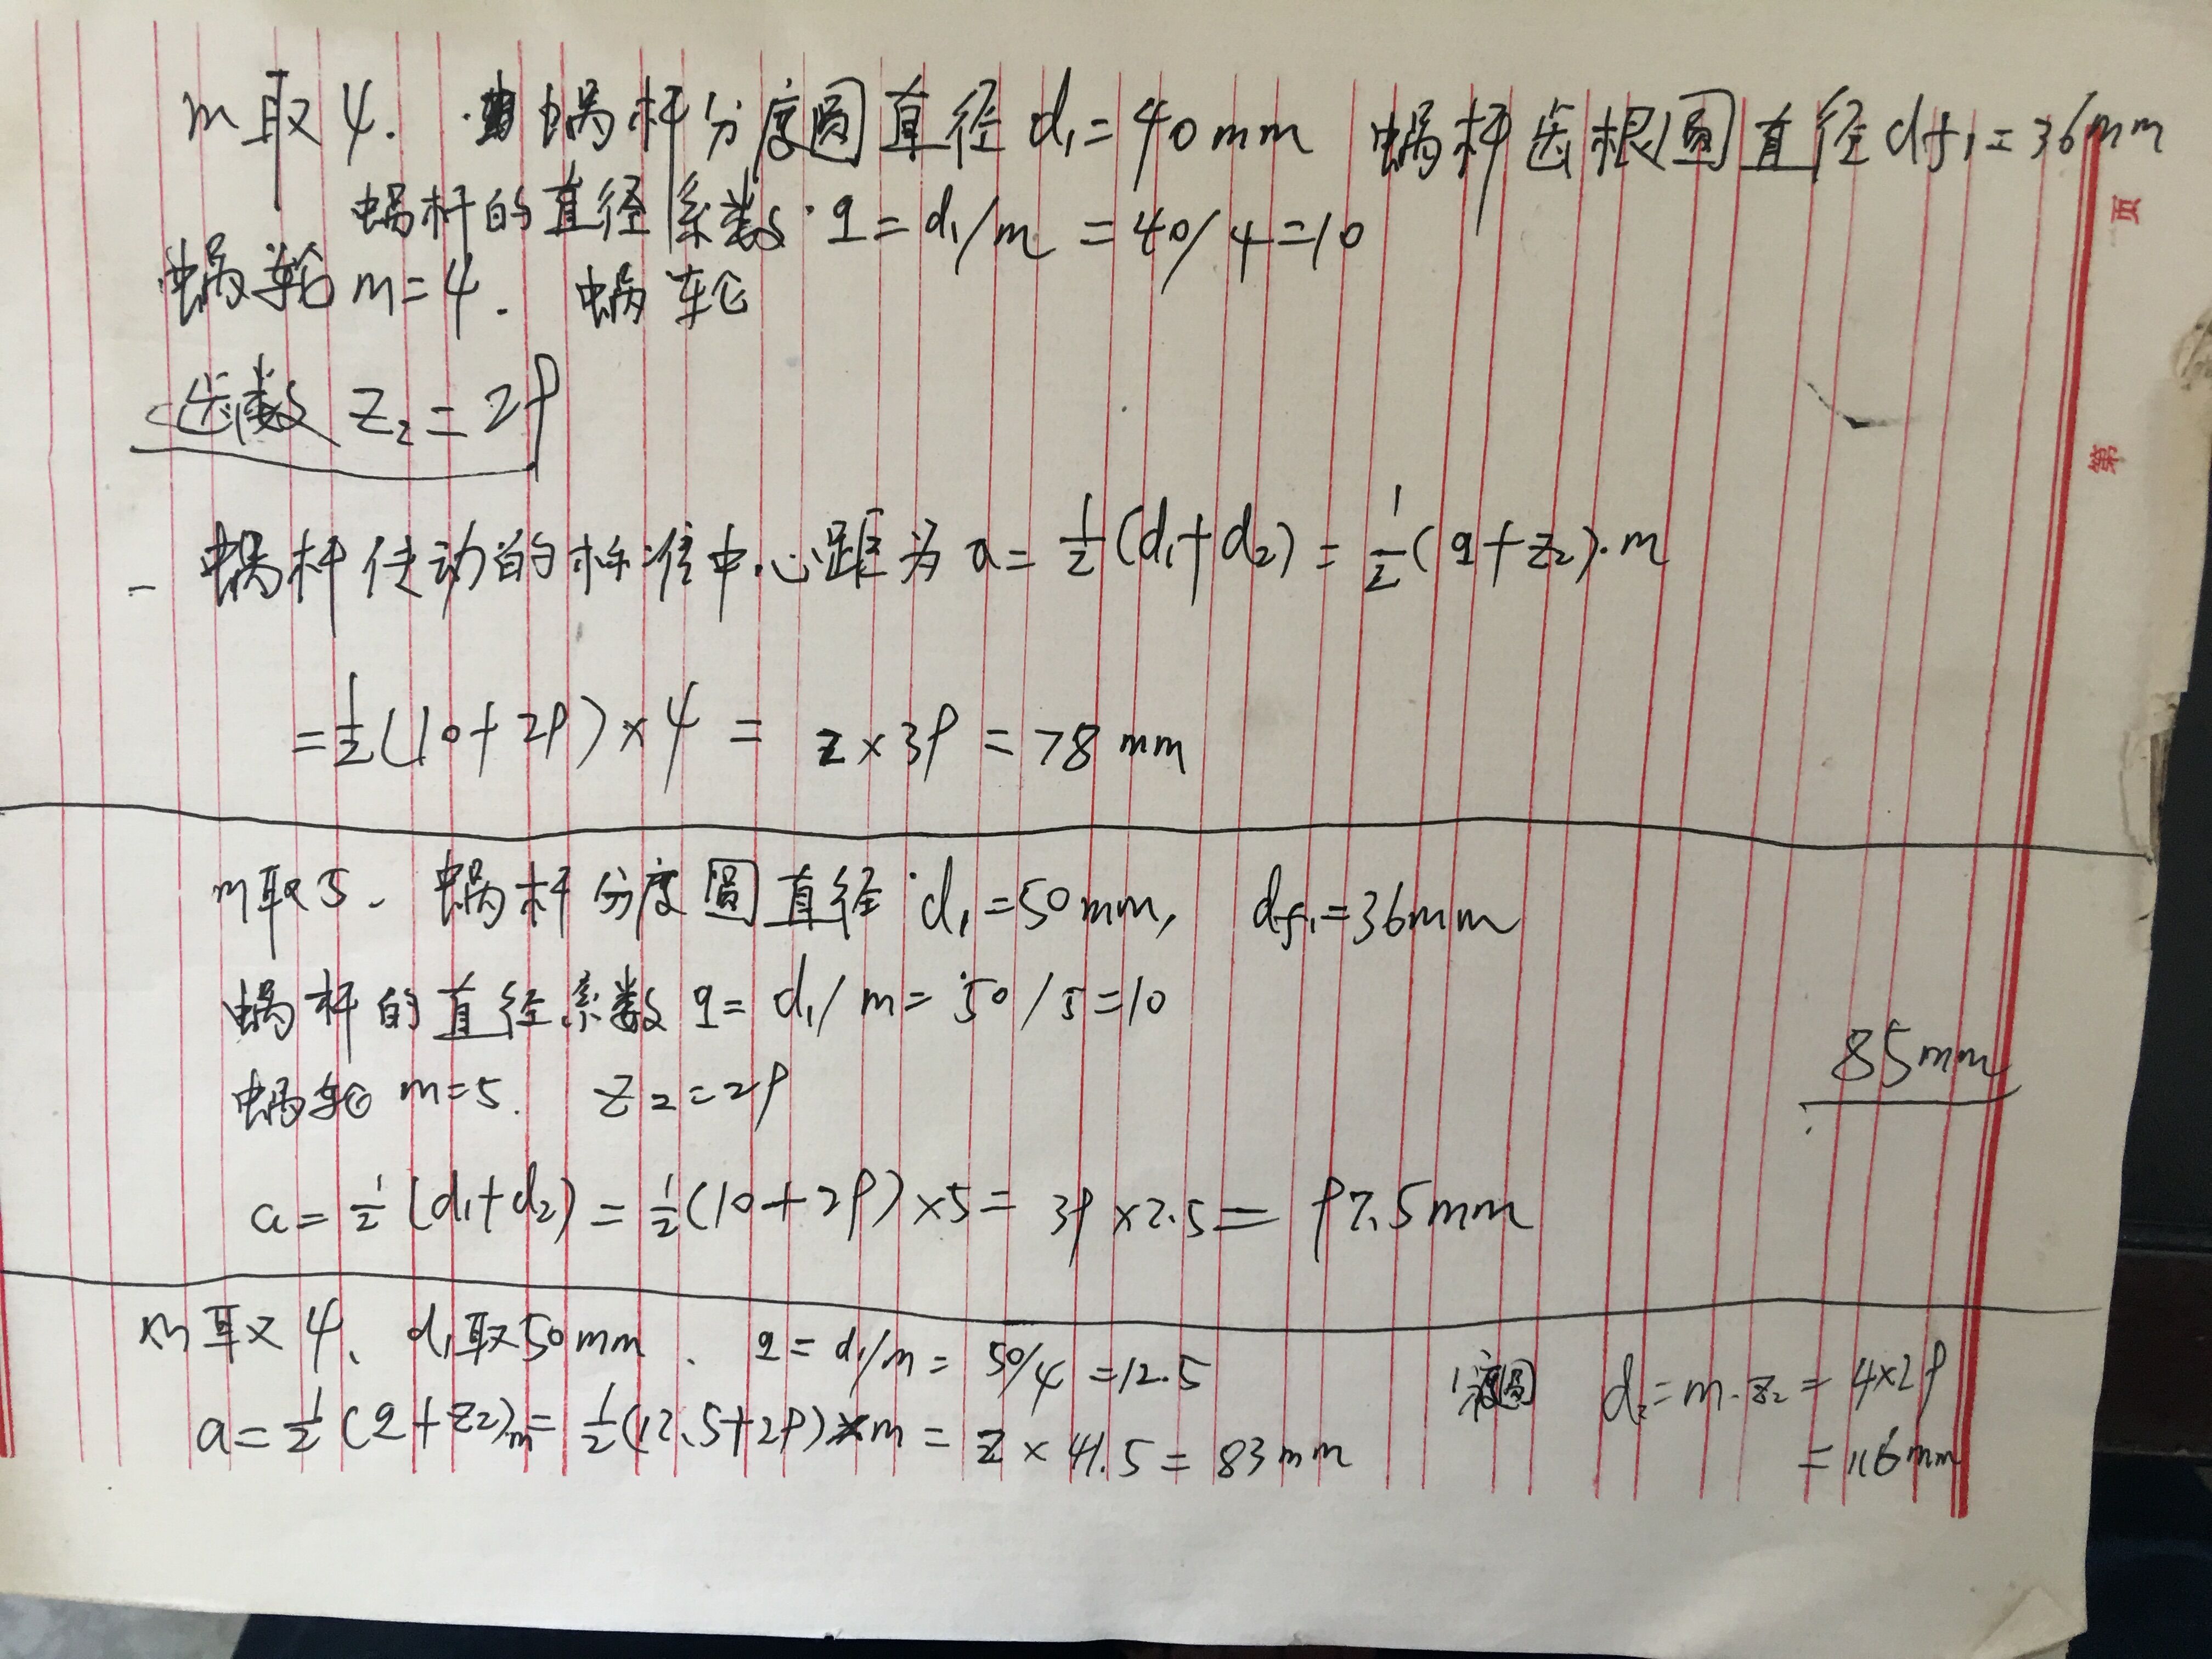 m取4. 蜗杆分度圆直径d₁=40mm 蜗杆齿根圆直径df₁=36mm
蜗杆的直径系数q=d₁/m=40/4=10
蜗轮m=4. 蜗轮
齿数 z₂=29
蜗杆传动的标准中心距为 a=½(d₁+d₂)=½(q+z₂)·m
=½(10+29)×4=2×39=78mm
m取5、蜗杆分度圆直径d₁=50mm, df₁=36mm
蜗杆的直径系数q=d₁/m=50/5=10
85mm
蜗轮m=5. z₂=29
a=½(d₁+d₂)=½(10+29)×5=39×2.5=97.5mm
m取4、d₁取50mm、q=d₁/m=50/4=12.5
a=½(q+z₂)m=½(12.5+29)×m=2×41.5=83mm
d₂=m·z₂=4×29
=116mm
页
第